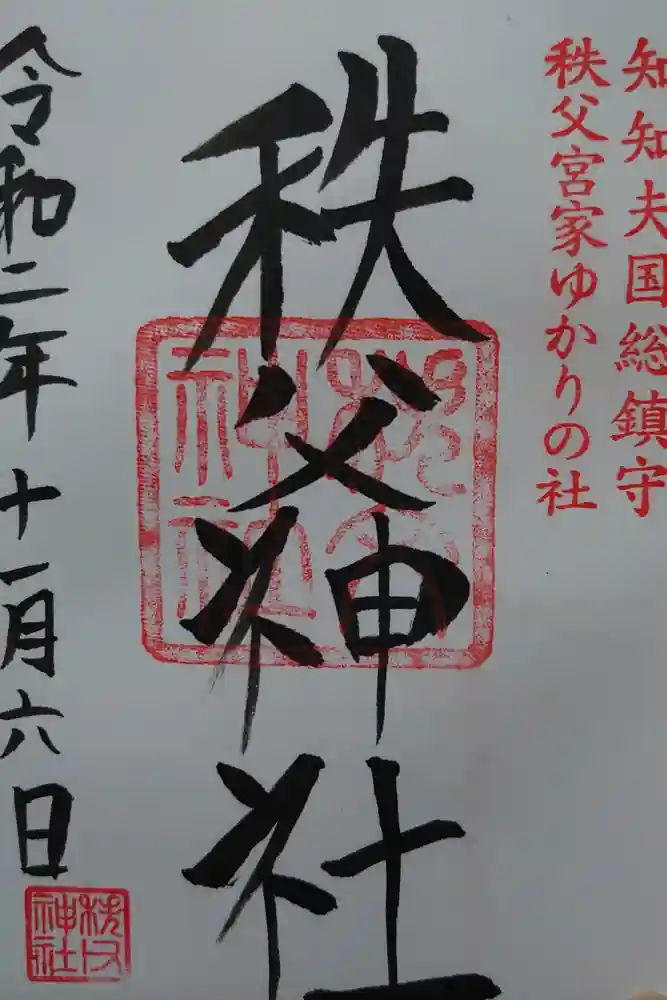 知知夫国総鎮守
秩父宮家ゆかりの社
秩父神社
秩父神社
令和二年十一月六日
秩父神社